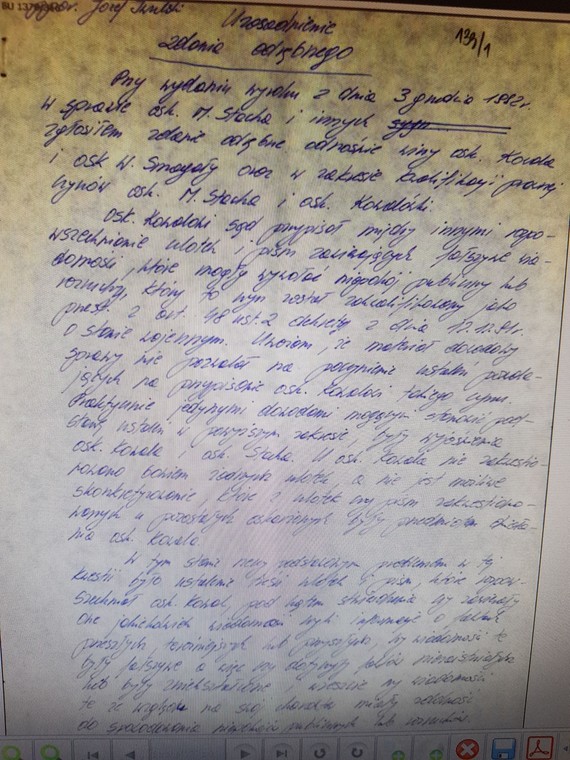 Uzasadnienie
zdania odrębnego
139/1
Przy wydaniu wyroku z dnia 3 grudnia 1982r.
w sprawie osk. M. Stacha i innych
zgłosiłem zdanie odrębne odnośnie winy osk. Kowala
i osk W. Smogały oraz w zakresie kwalifikacji prawnej
czynów osk. M. Stacha i osk.
Osk. sąd przypisał między innymi rozpo-
wszechnianie ulotek i pism zawierających fałszywe wia-
domości, które mogły wywołać niepokój publiczny lub
rozruchy, który to czyn został zakwalifikowany jako
przest. z art. 48 ust. 2 dekretu z dnia 12.12.81r.
o stanie wojennym. Uważam, że materiał dowodowy
sprawy nie pozwalał na poczynienie ustaleń pozwala-
jących na przypisanie osk. takiego czynu.
Praktycznie jedynymi dowodami mogącymi stanowić pod-
stawę ustaleń w powyższym zakresie, były wyjaśnienia
osk. Kowala i osk. Stacha. U osk. Kowala nie zakwestio-
nowano bowiem żadnych ulotek, a nie jest możliwe
skonkretyzowanie, które z ulotek czy pism zakwestiono-
wanych u pozostałych oskarżonych były przedmiotem działa-
nia osk. Kowala.
W tym stanie rzeczy podstawowym problemem w tej
kwestii było ustalenie treści ulotek i pism, które rozpow-
szechniał osk. Kowal, pod kątem stwierdzenia czy zawierały
one jakichkolwiek wiadomości czyli informacje o faktach
przeszłych, teraźniejszych lub przyszłych, czy wiadomości te
były fałszywe a więc czy dotyczyły faktów
lub były zniekształcone i wreszcie czy wiadomości
te ze względu na swój charakter miały zdolność
do spowodowania niepokoju publicznego lub rozruchów.